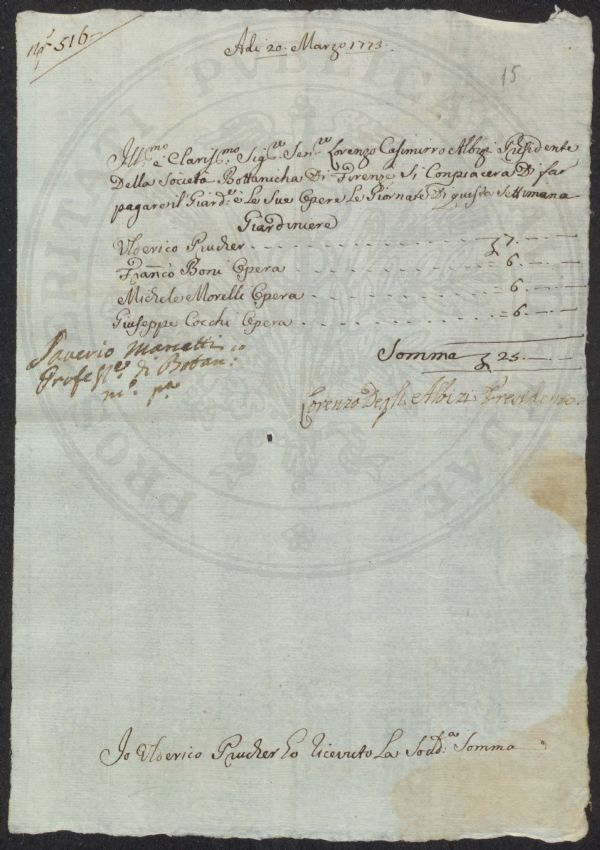 N.º 516
Adi 20. Marzo 1773.
15
Ill.mo e Claris.mo Sig.re Sen.re Lorenzo Casimirro Albizi Presidente
Della Società Bottanicha Di Firenze Si Conpiacera Di far
pagare il Giard.e e Le Sue Opere Le Giornate Di questa Settimana
Giardiniere
Ulderico Prucher 7.
Franco Boni Opera 6.
Michele Morelli Opera 6.
Giuseppe Cocchi Opera 6.
Somma 25.
Saverio Manetti
Profess.re di Botan.ca
m.o p.a
Lorenzo Degli Albizi Presidente
Io Ulderico Prucher ho riceuto La Sodd.a Somma